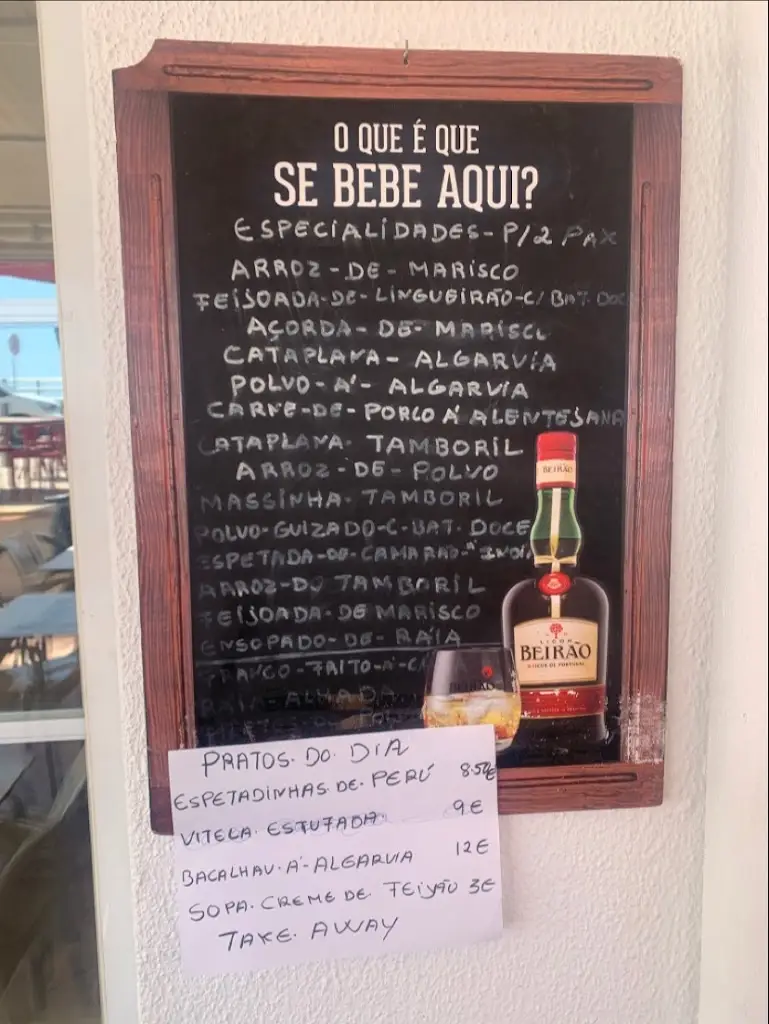 O QUE É QUE
SE BEBE AQUI?
ESPECIALIDADES- P/2 PAX
ARROZ-DE-MARISCO
FEIJOADA-DE-LINGUEIRÃO-C/ BAT. DOC
AÇORDA-DE-MARISCO
CATAPLANA-ALGARVIA
POLVO-A'-ALGARVIA
CARNE-DE-PORCO A' ALENTEJANA
CATAPLANA. TAMBORIL
ARROZ-DE-POLVO
MASSINHA. TAMBORIL
POLVO-GUIZADO-C-BAT. DOCE
ESPETADA-DE-CAMARÃO-
ARROZ-DO TAMBORIL
FEIJOADA-DE MARISCO
ENSOPADO-DE-RAIA
FRANCO-FAITO-A'-
ALHADA
BEIRÃO
LICOR
BEIRÃO
LICOR DE PORTUGAL
BEIRÃO
PRATOS.DO.DIA
ESPETADINHAS.DE.PERÚ 8.50€
VITELA.ESTUFADA. 9€
BACALHAU.A'-ALGARVIA 12€
SOPA.CREME DE. FEIJÃO 3€
TAKE.AWAY